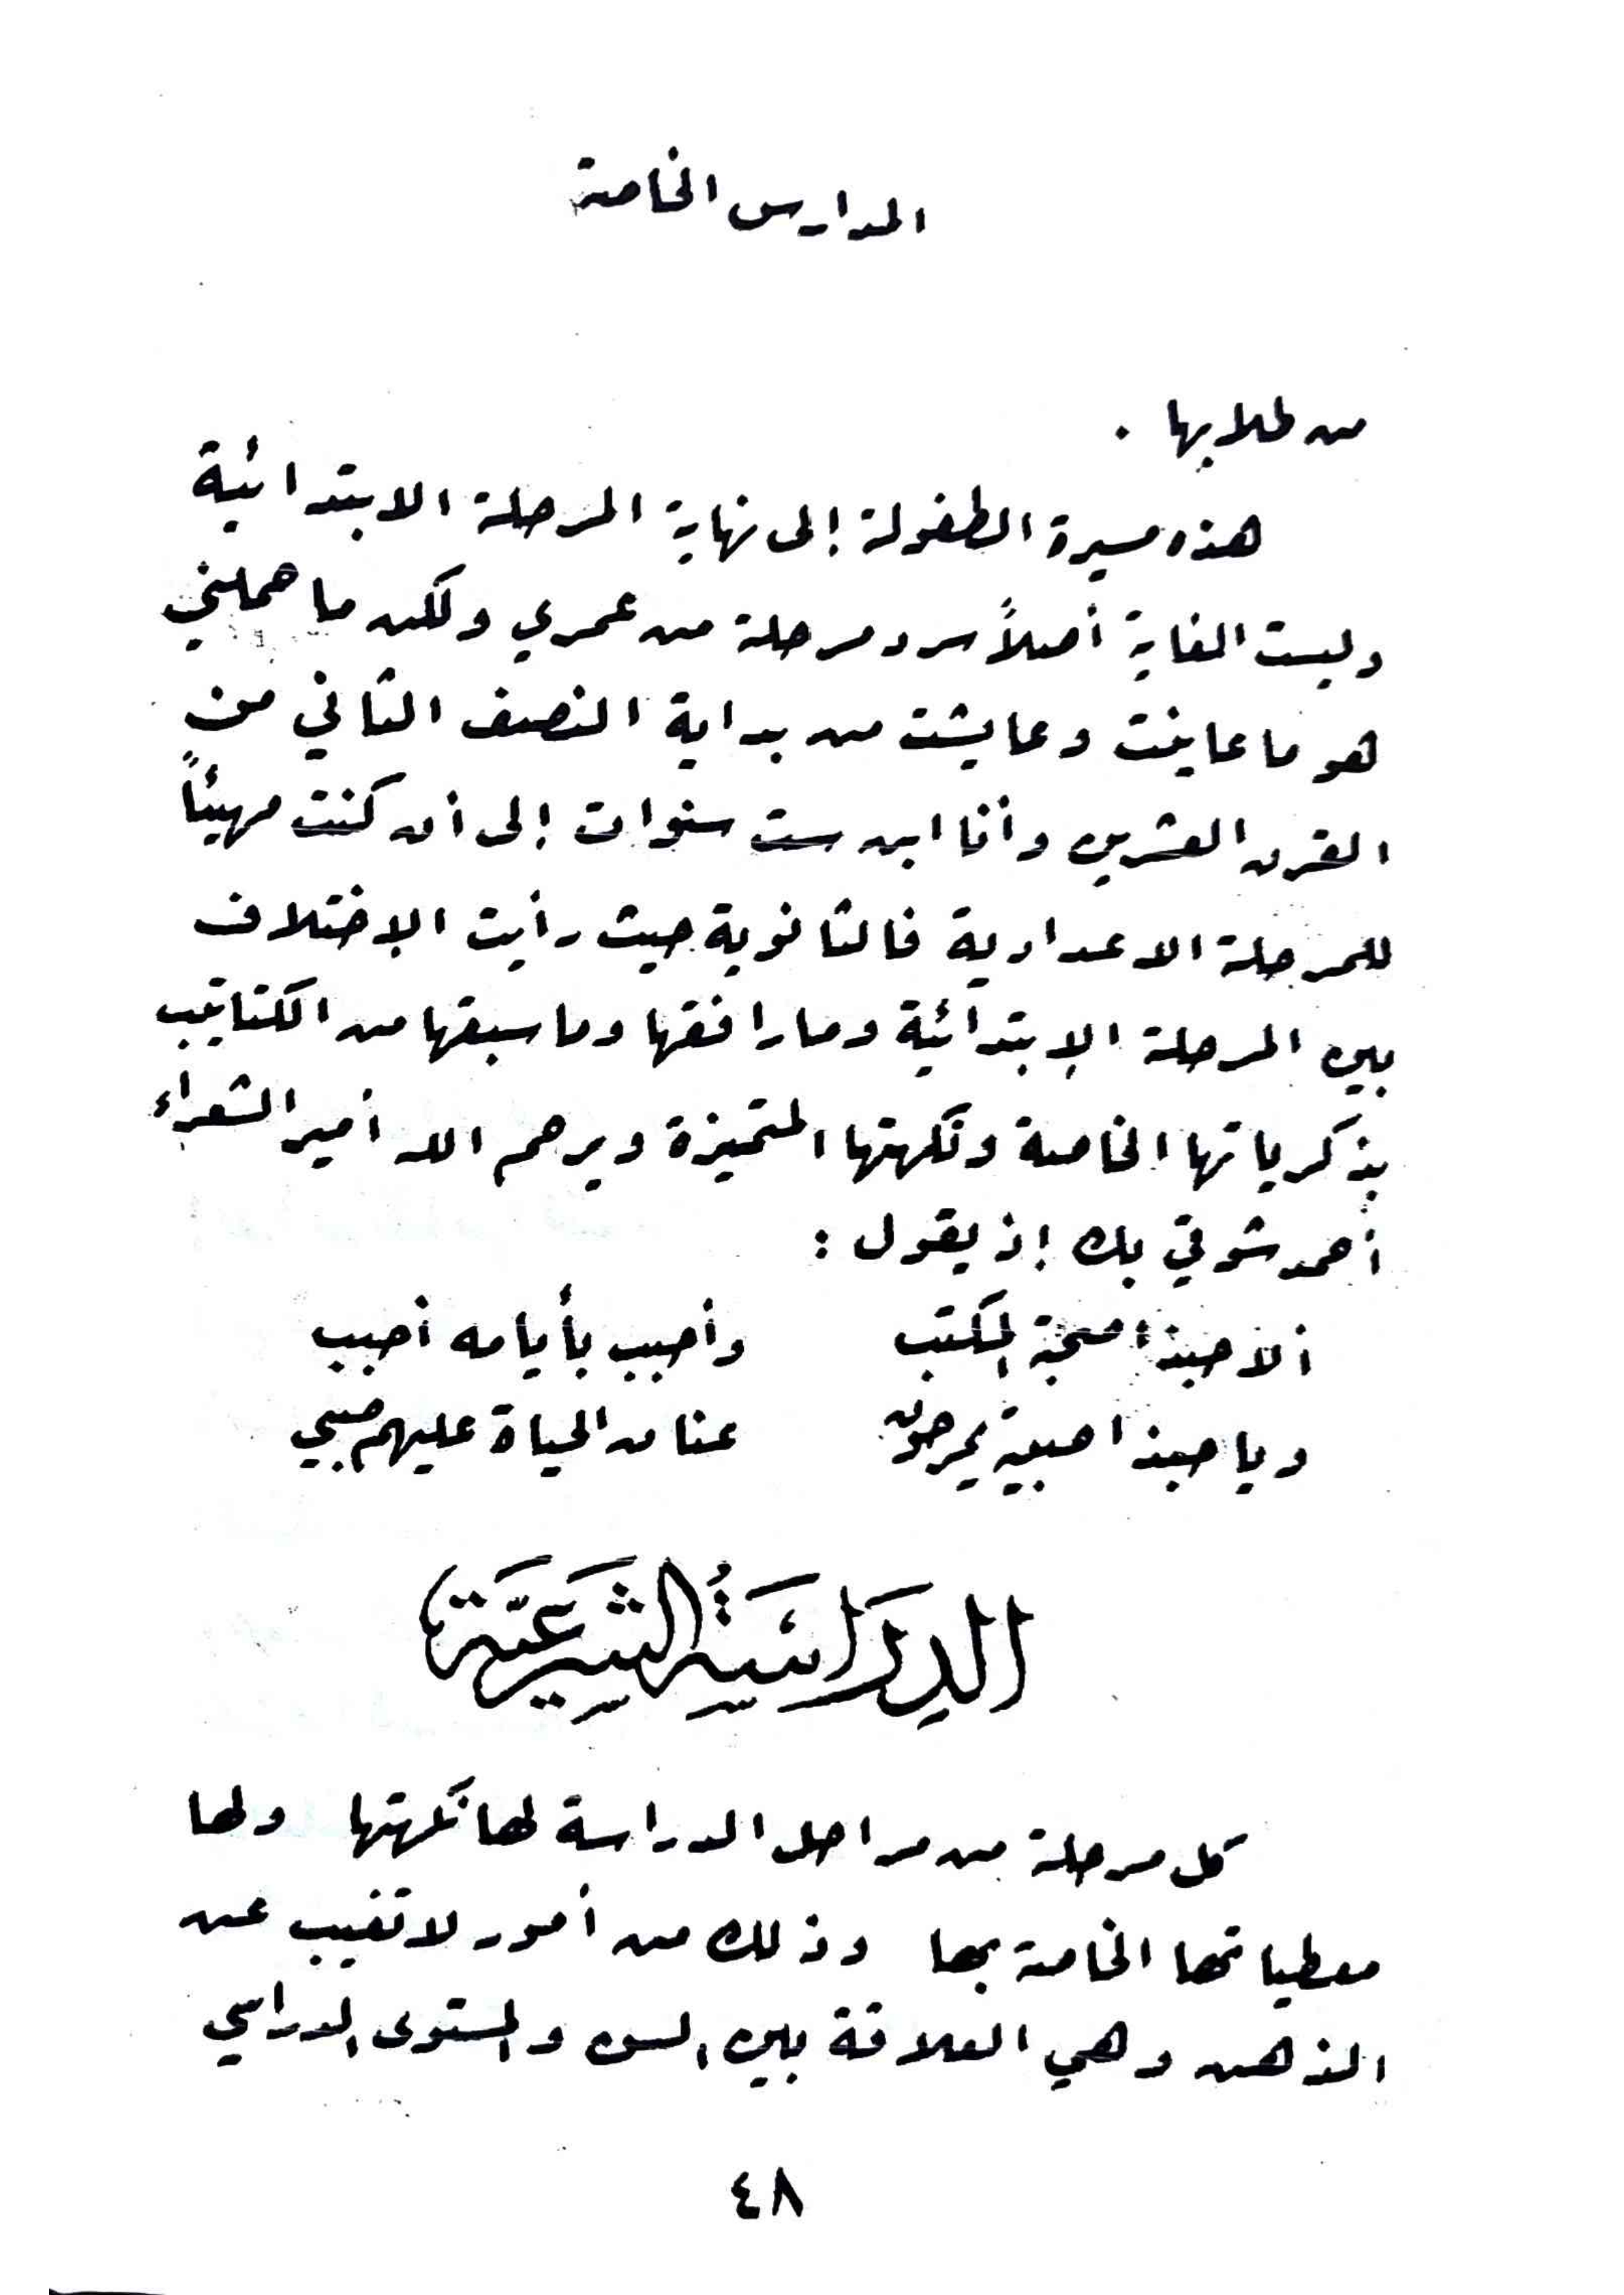 المدارس الخاصة
من طلابها .
هذه مسيرة الطفولة إلى نهاية المرحلة الابتدائية
وليست الغاية أصلاً سرد مرحلة من عمري ولكن ما حملني
هو ما عاينت وعايشت من بداية النصف الثاني من
القرن العشرين وأنا ابن ست سنوات إلى أن كنت مهيئاً
للمرحلة الاعدادية فالثانوية حيث رأيت الإختلاف
بين المرحلة الإبتدائية وما رافقها وما سبقها من الكتاتيب
بذكرياتها الخاصة ونكهتها المتميزة ويرحم الله أمير الشعراء
أحمد شوقي بك إذ يقول :
ألا حبذا صحبة المكتب وأحبب بأيامه أحبب
ويا حبذا صبية يمرحون عنان الحياة عليهم صبي
الدِرَاسَةُ الشَرعِيَّة
كل مرحلة من مراحل الدراسة لها نكهتها ولها
معطياتها الخاصة بها وذلك من أمور لا تغيب عن
الذهن وهي العلاقة بين السن والمستوى الدراسي
٤٨